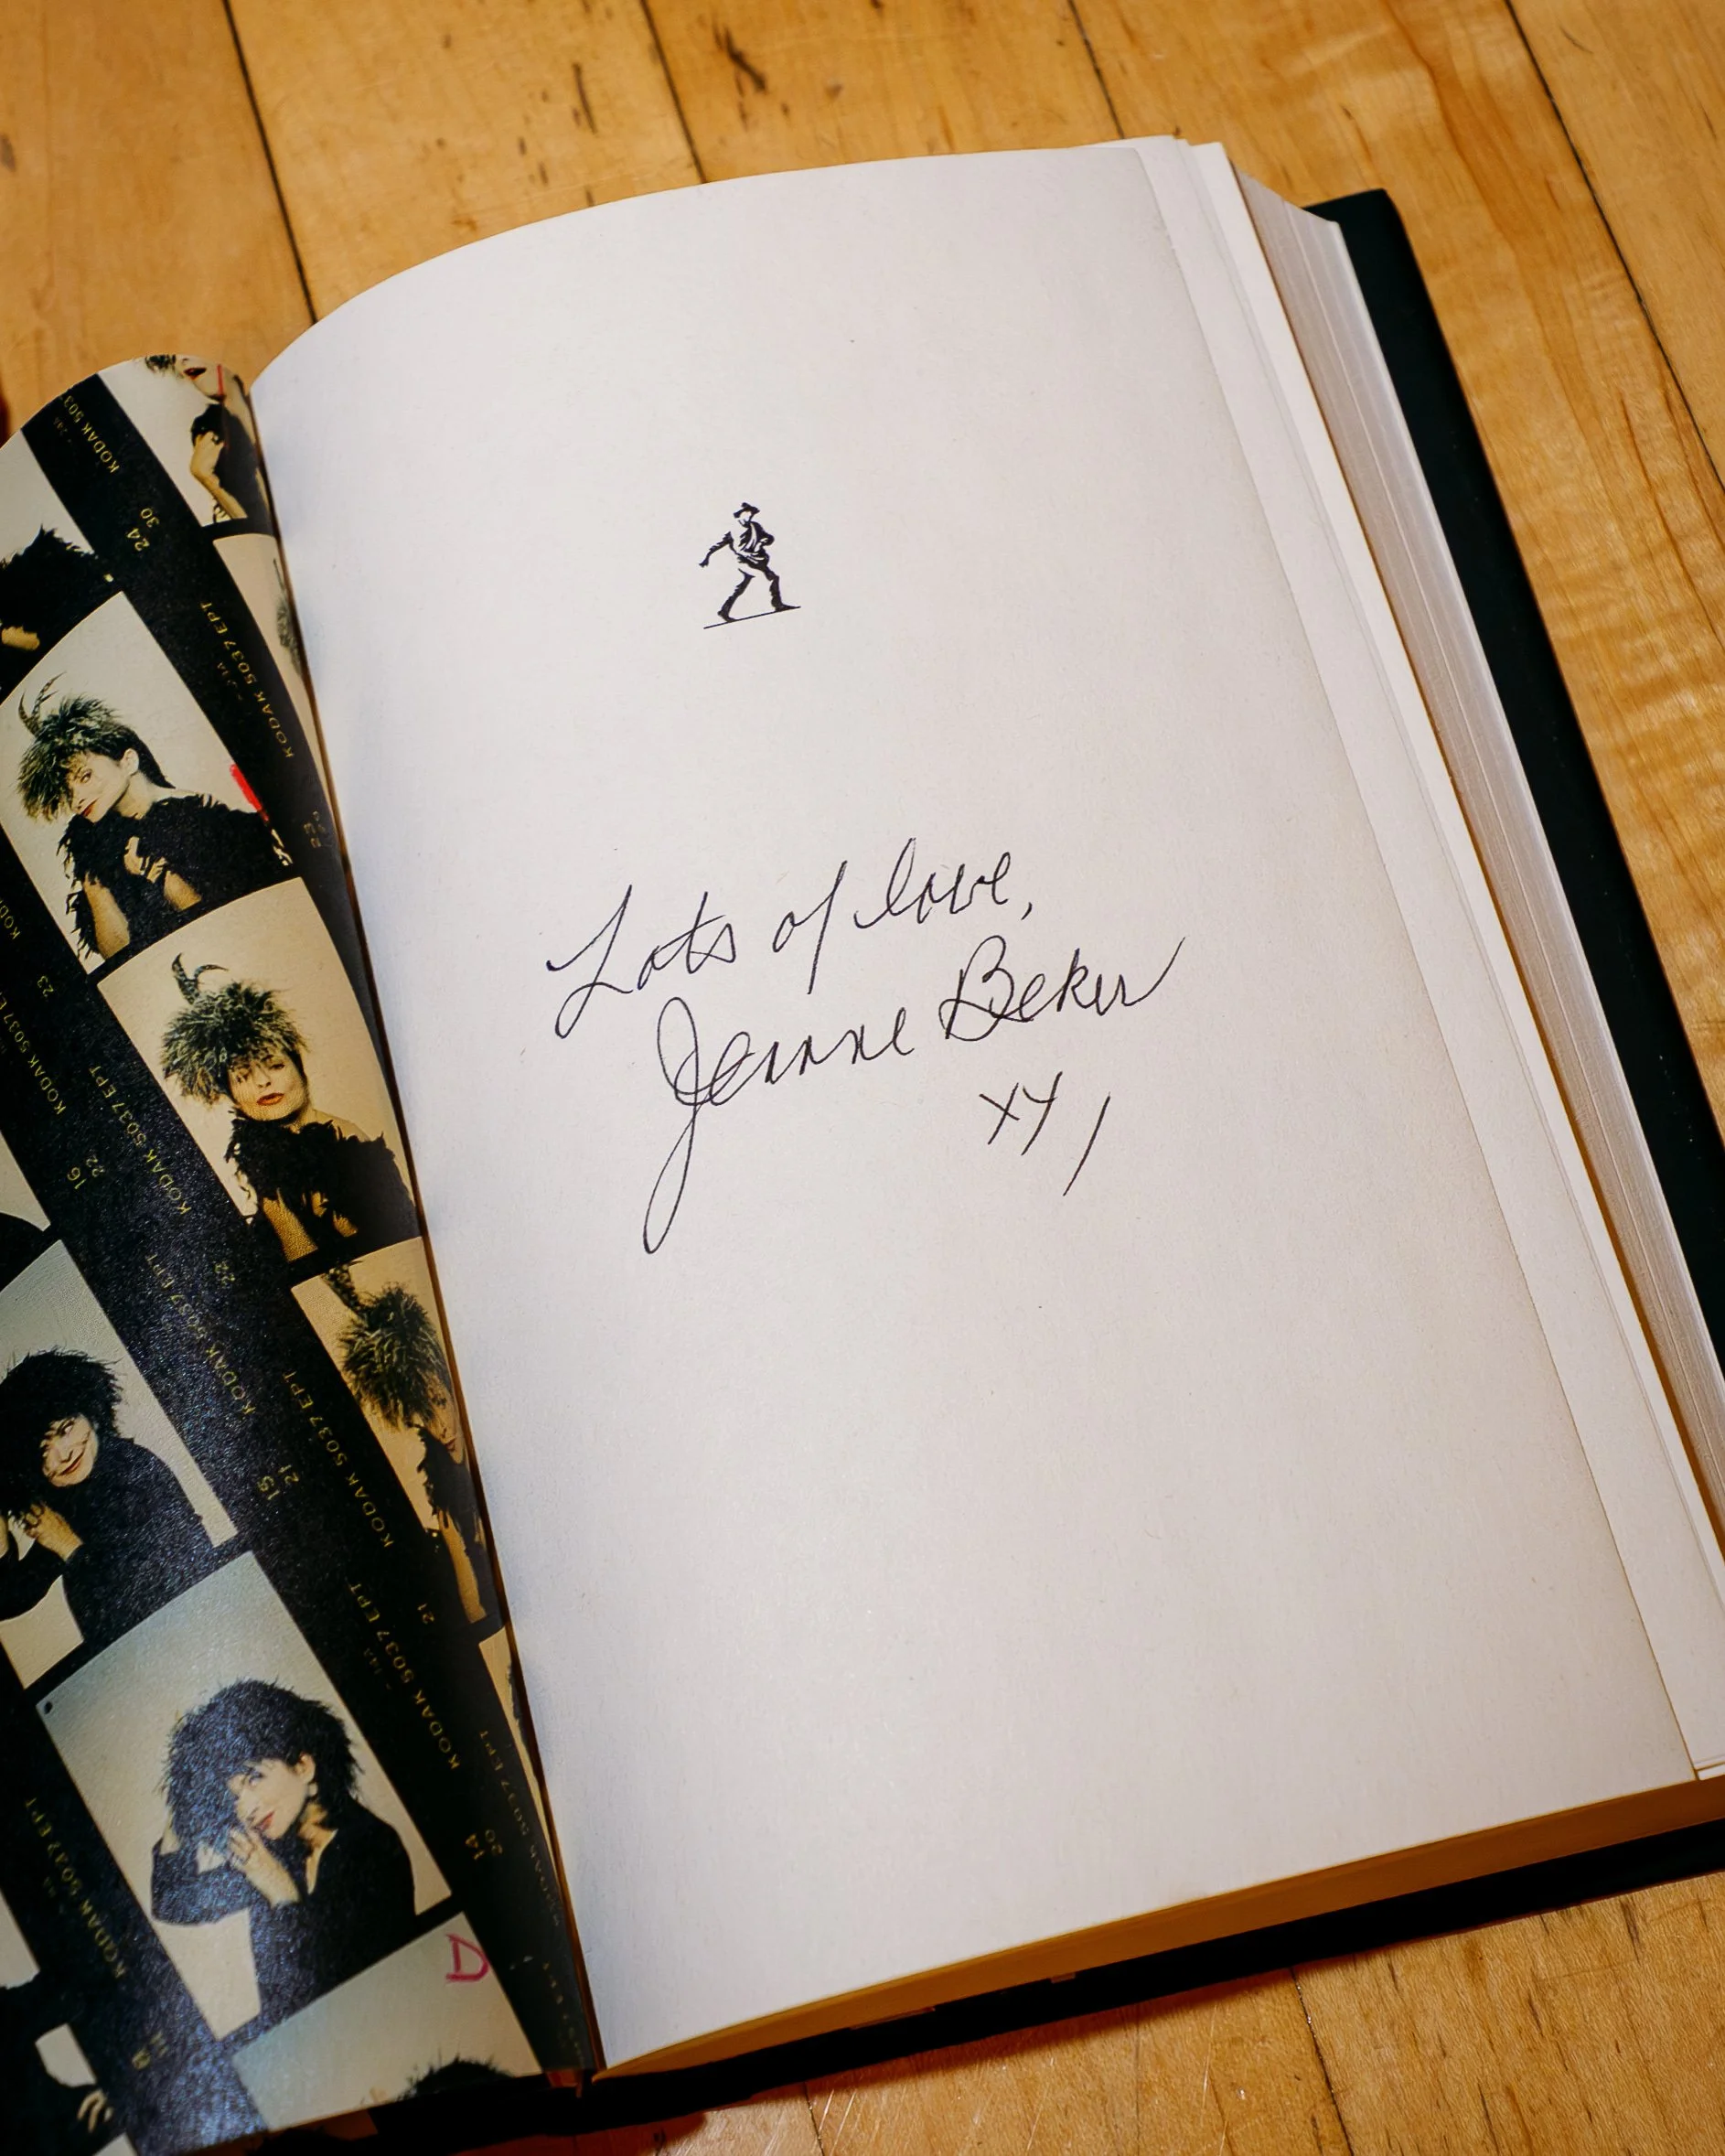 KODAK 503
KODAK
24
30
KODAK 5037 EPT
KODAK
23
KODAK 5037 EPT
KODAK 5037 EPT
KODAK
16
22
22
KODAK 5037 EPT
KODAK 5037 EPT
15
21
21
KODAK 5037 EPT
KODAK 5037 EPT
14
20
D
Lots of love,
Jeanne Beker
xx/